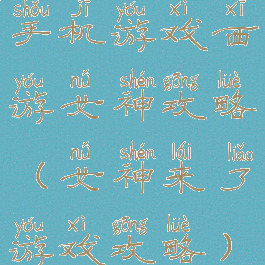 shǒu jī yóu xì xī
手机游戏西
yóu nǚ shén gōng lüè
游女神攻略
nǚ shén lái liǎo
（女神来了
yóu xì gōng lüè
游戏攻略）